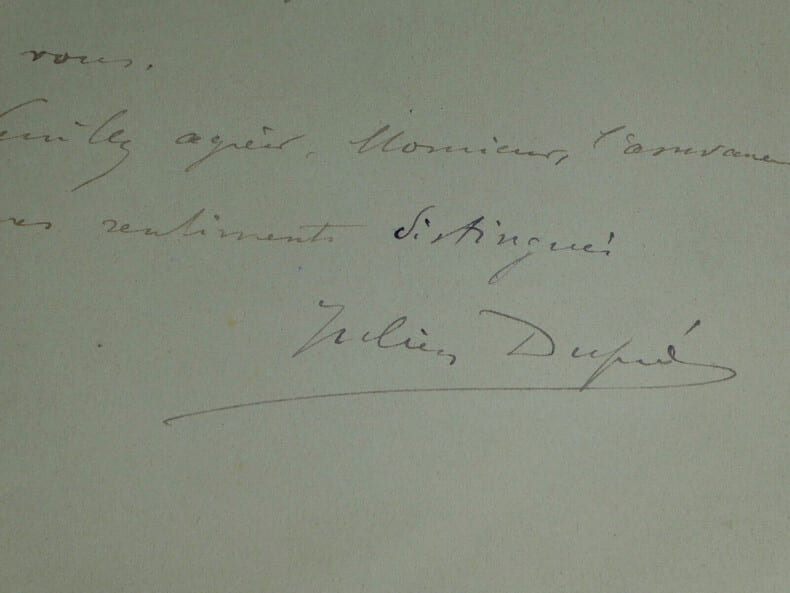 vous.
Veuillez agréer, Monsieur, l'assurance
mes sentiments distingués
Julien Dupré